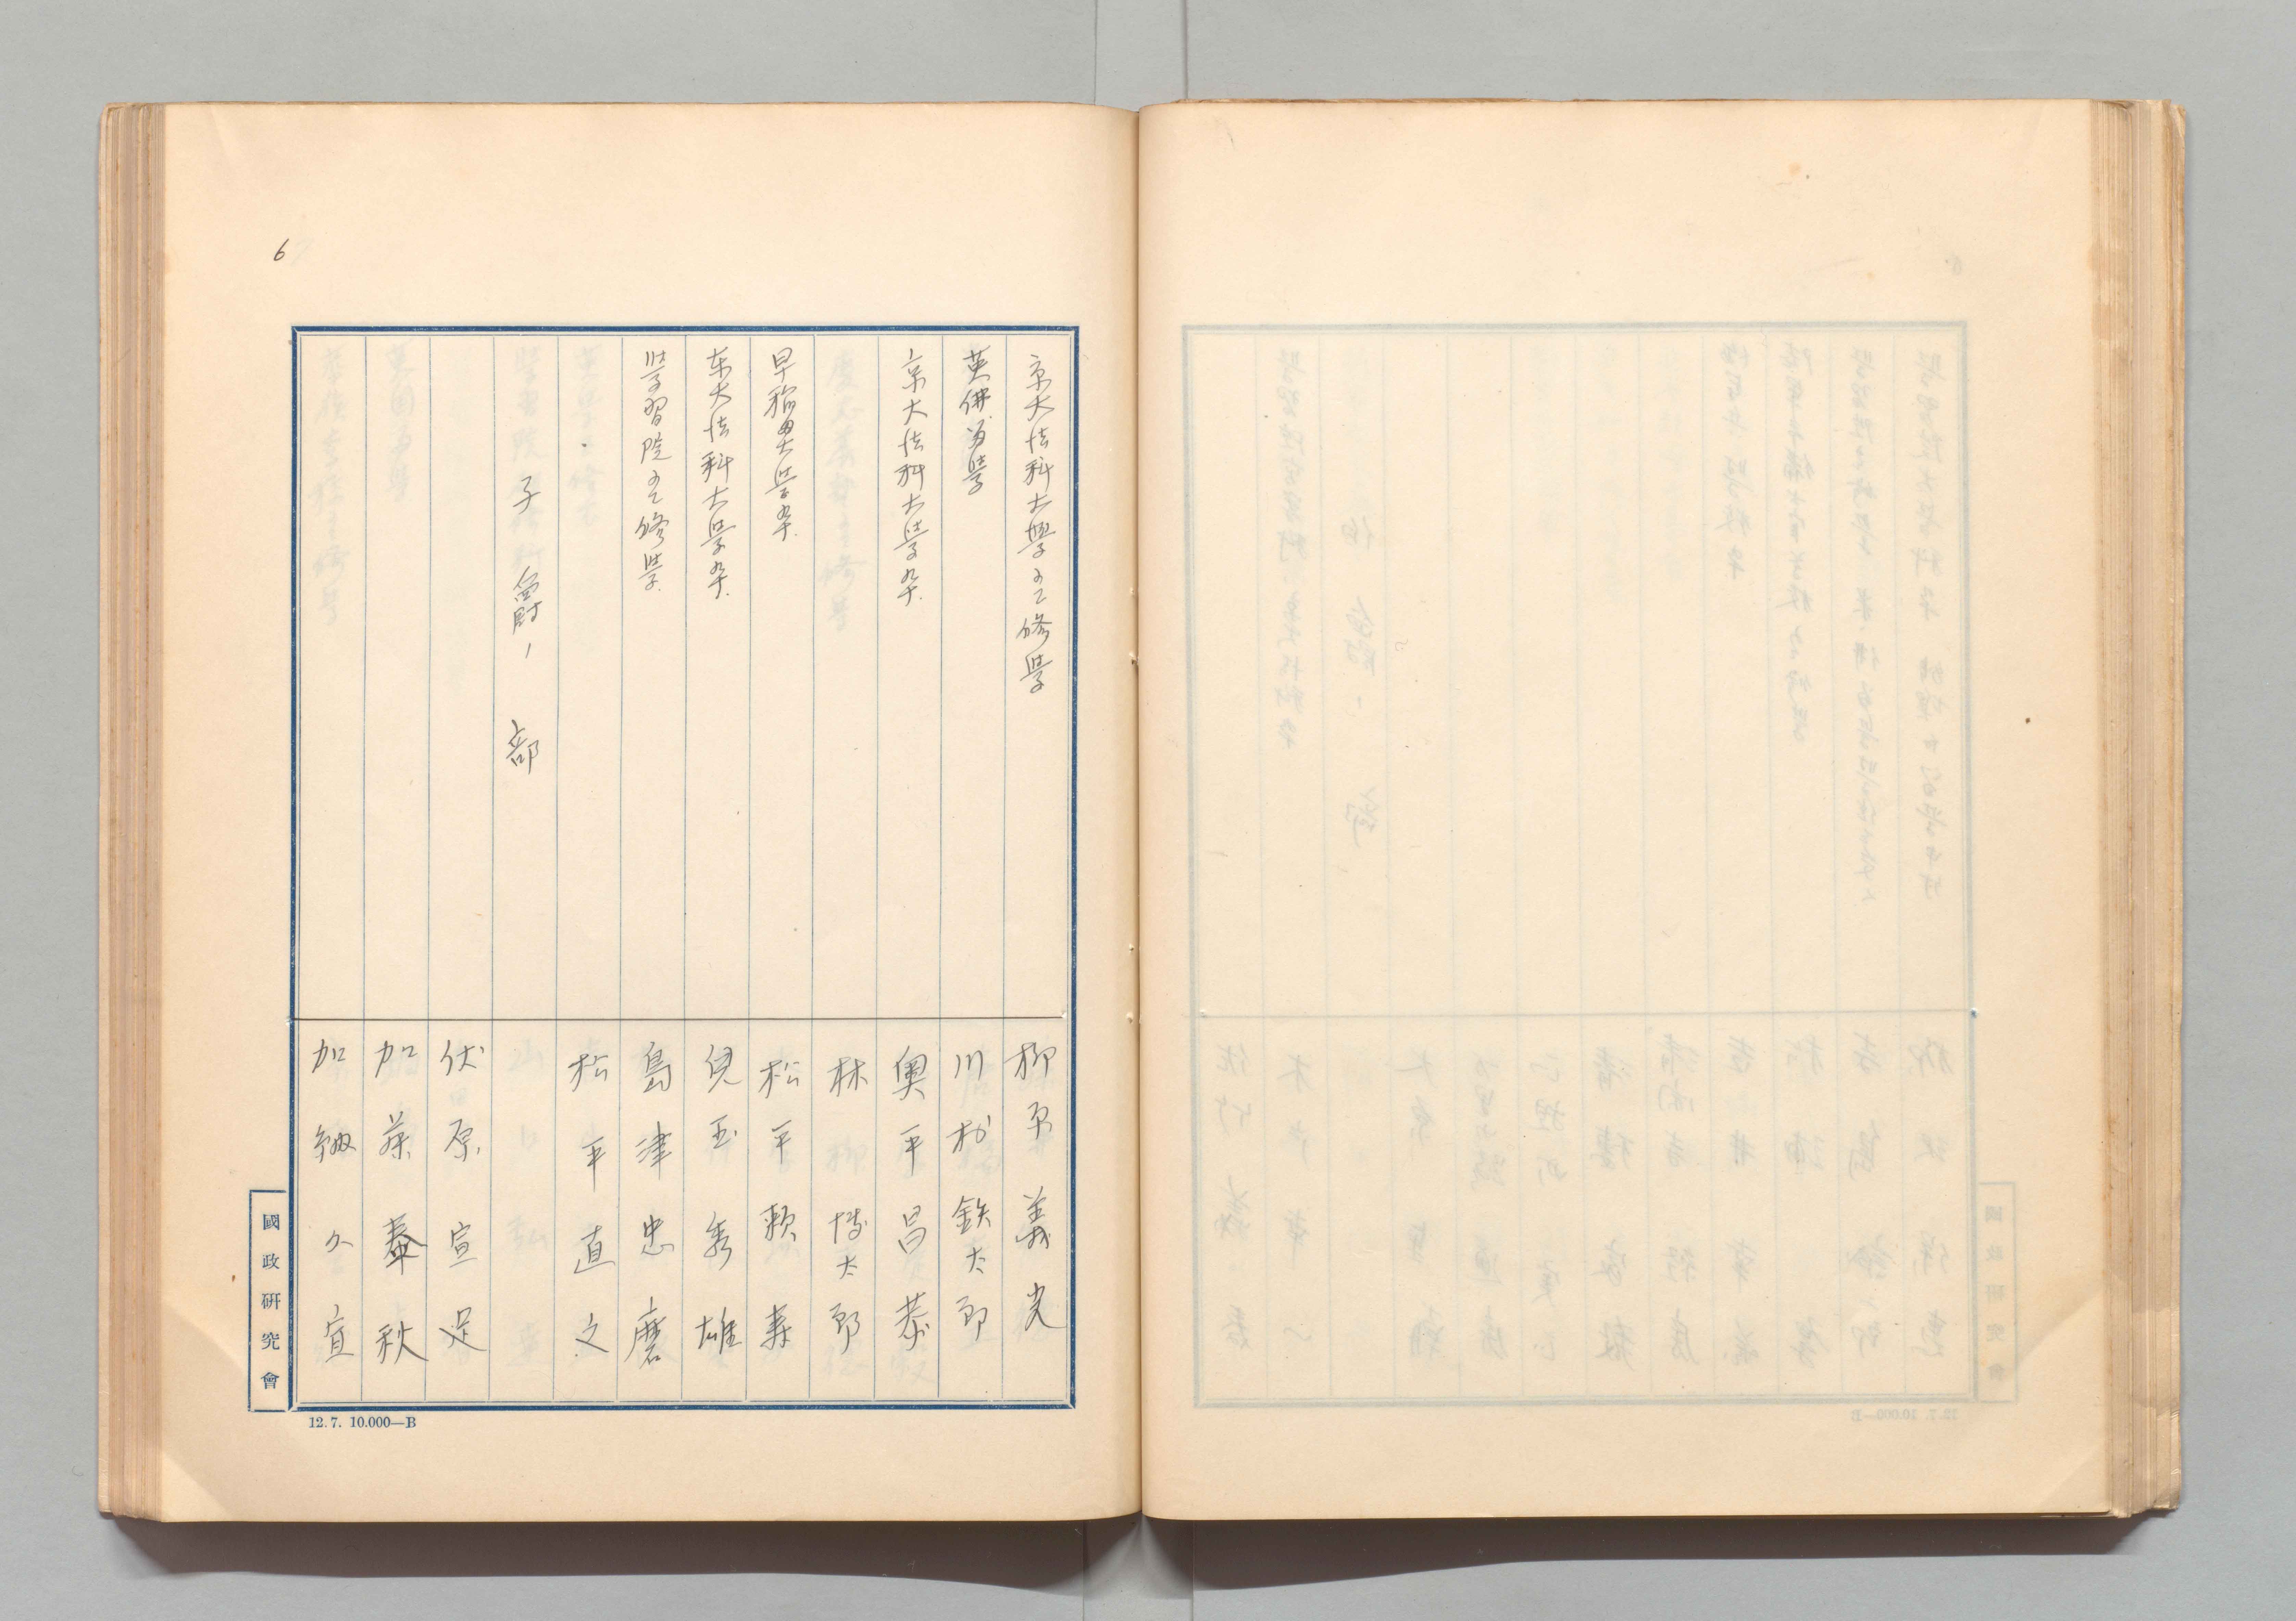 6
京大法科大學ニテ修學
柳原義光
英佛留學
川村鉄太郎
京大法科大學卒.
奧平昌恭
林博太郎
早稲田大學卒.
松平頼寿
东大法科大學卒.
児玉秀雄
學習院ニテ修學.
島津忠麿
松平直之
子爵ノ部
伏原宣足
加藤泰秋
加納久宜
國政研究會
12.7. 10.000—B